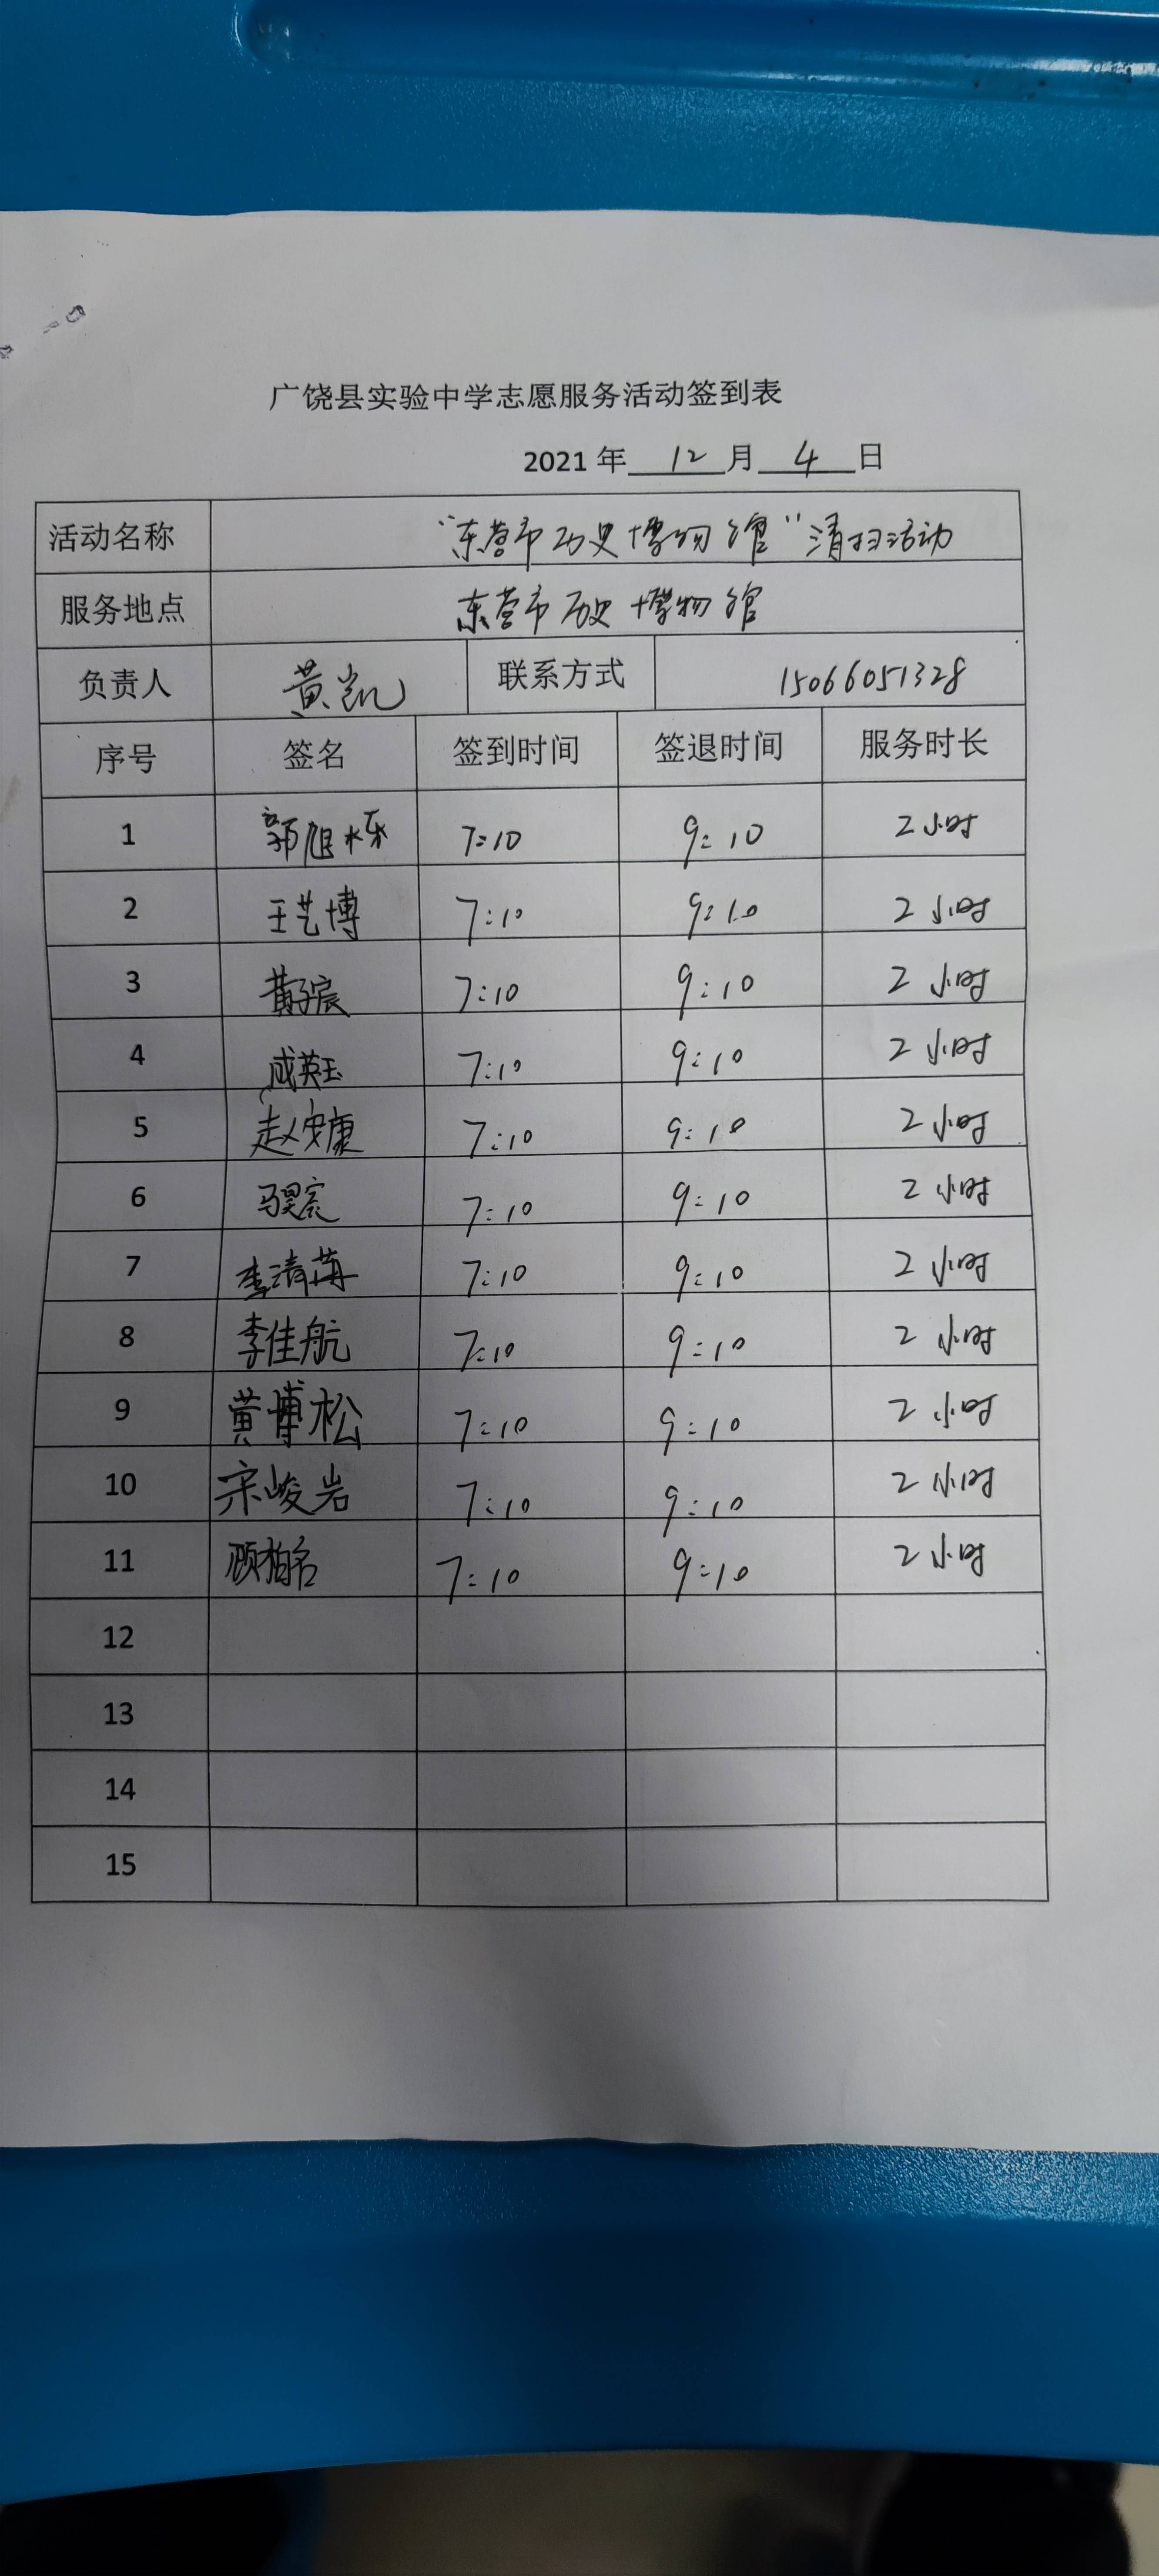 广饶县实验中学志愿服务活动签到表
2021 年 12 月 4 日
活动名称 “东营市历史博物馆”清扫活动
服务地点 东营市历史博物馆
负责人 黄凯 联系方式 15066051328
序号 签名 签到时间 签退时间 服务时长
1 郭旭栎 7:10 9:10 2小时
2 王艺博 7:10 9:10 2小时
3 黄子宸 7:10 9:10 2小时
4 成英玉 7:10 9:10 2小时
5 赵安康 7:10 9:10 2小时
6 马昊宸 7:10 9:10 2小时
7 李清苒 7:10 9:10 2小时
8 李佳航 7:10 9:10 2小时
9 黄博松 7:10 9:10 2小时
10 宋峻岩 7:10 9:10 2小时
11 顾柏名 7:10 9:10 2小时
12
13
14
15